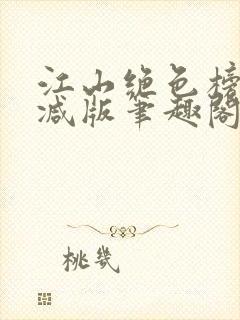 江山绝色榜
减版笔趣阁
桃几